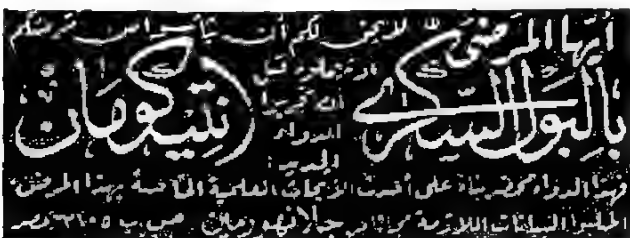 أيها المرضى لا يحق لكم أن تيأسوا من مرضكم
بالبول السكري
أو شفاؤه قبل
أن تجربوا
الدواء
الجديد
انتيكومان
وهذا الدواء محضر بناء على أحدث الأبحاث العلمية الخاصة بهذا المرض
اطلبوا البيانات اللازمة مجانا من جلانهورمين ص ب ٢١٠٥ مصر